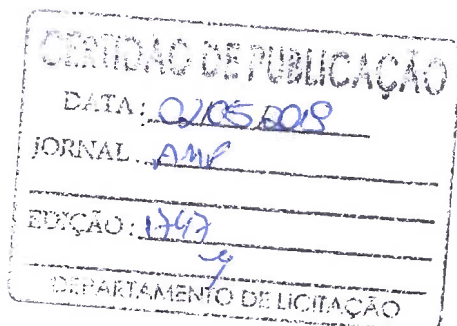 CERTIDÃO DE PUBLICAÇÃO
DATA: 02/05/2019
JORNAL: AMP
EDIÇÃO: 1747
DEPARTAMENTO DE LICITAÇÃO